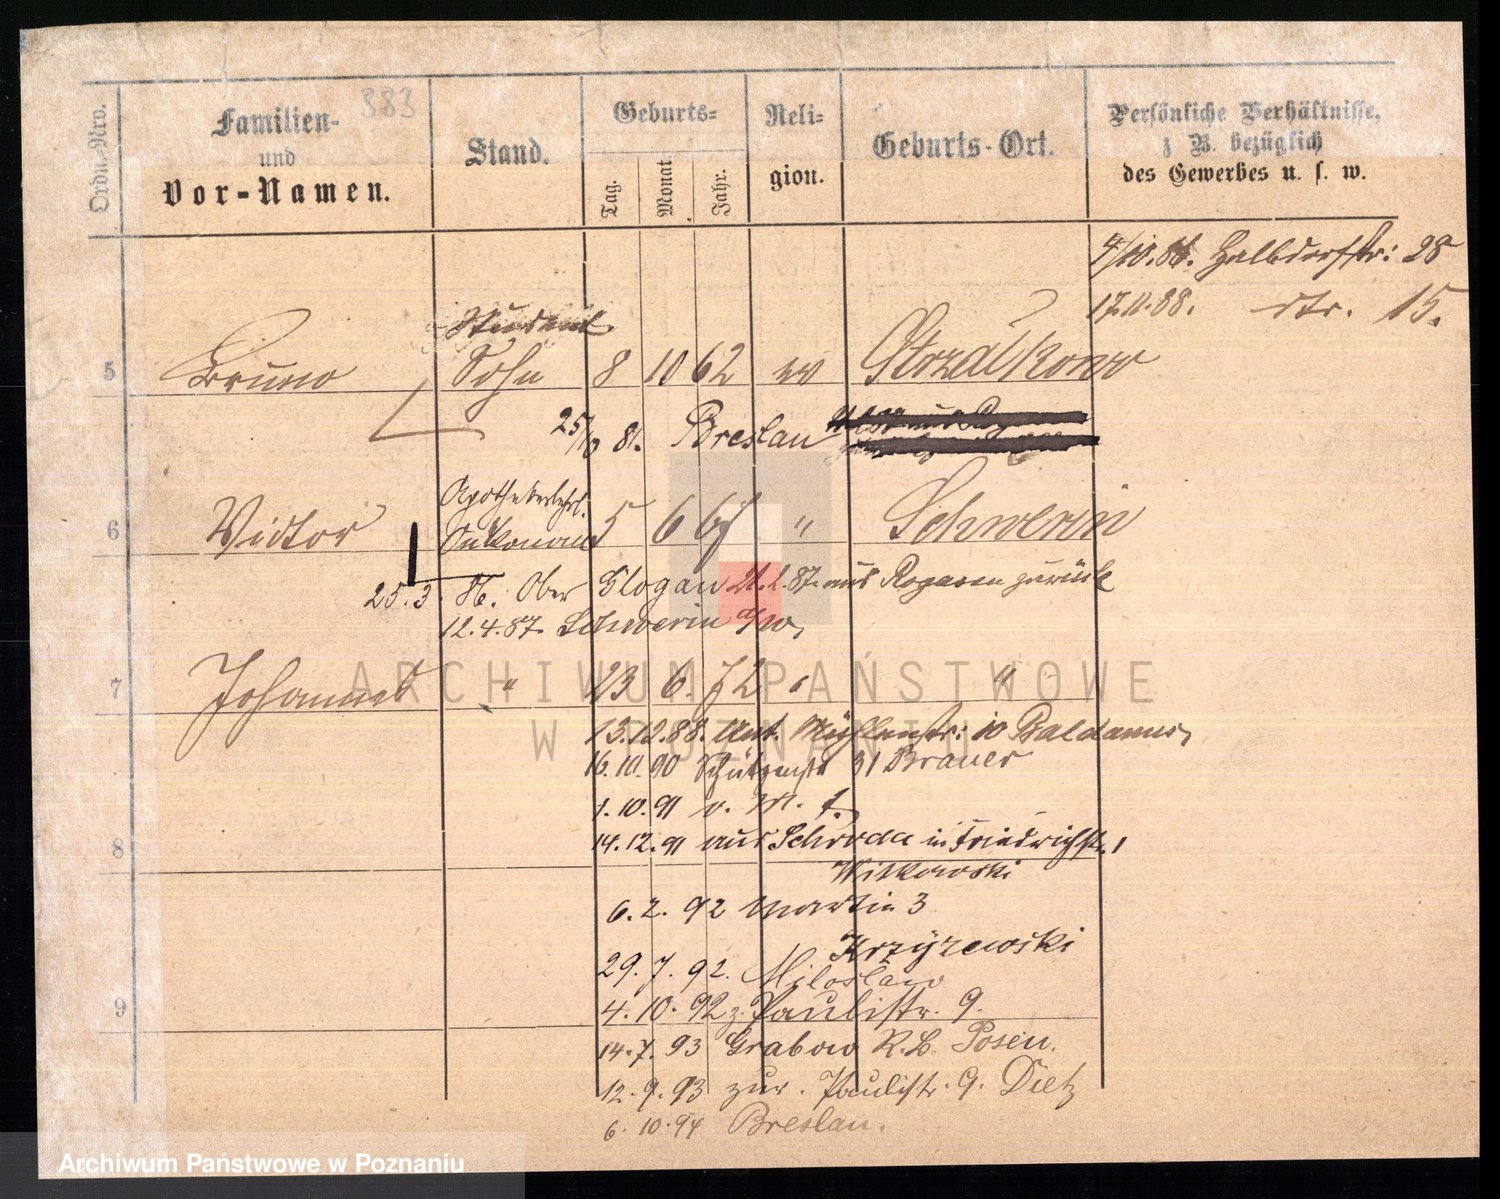 383
Ordn.-Nro.
Familien-
und
Vor-Namen.
Stand.
Geburts-
Tag.
Monat.
Jahr.
Reli-
gion.
Geburts-Ort.
Persönliche Verhältnisse,
z B. bezüglich
des Gewerbes u. s. w.
4/10.86. Halbdorfstr: 28
17.11.88. dto. 15.
Student
5 Bruno Sohn 8 10 62 ev
25/10 81. Breslau
Apothekerlehrl.
6 Victor 5 6 67 " Schwerin
25.3. 86. Ober Glogau 21.2.87. aus Rogasen zurück
12.4.87. Schwerin a/W.
7 Johannes " 23 6. 72 " "
13.12.88. Unt. Mühlenstr: 10 Baldamus,
16.10.90 Schützenstr 31 Brauer
1.10.91 v. M.
14.12.91 aus Schroda in Friedrichstr. 1
8 Witkowski
6.2.92 Martin 3
Krzyzewski
29.7.92. Miloslaw
9 4.10.92 z. Paulistr. 9.
14.7.93 Grabow R.B. Posen.
12.9.93 zur. Paulistr. 9. Dietz
6.10.94 Breslau.
ARCHIWUM PAŃSTWOWE
W POZNANIU
Archiwum Państwowe w Poznaniu